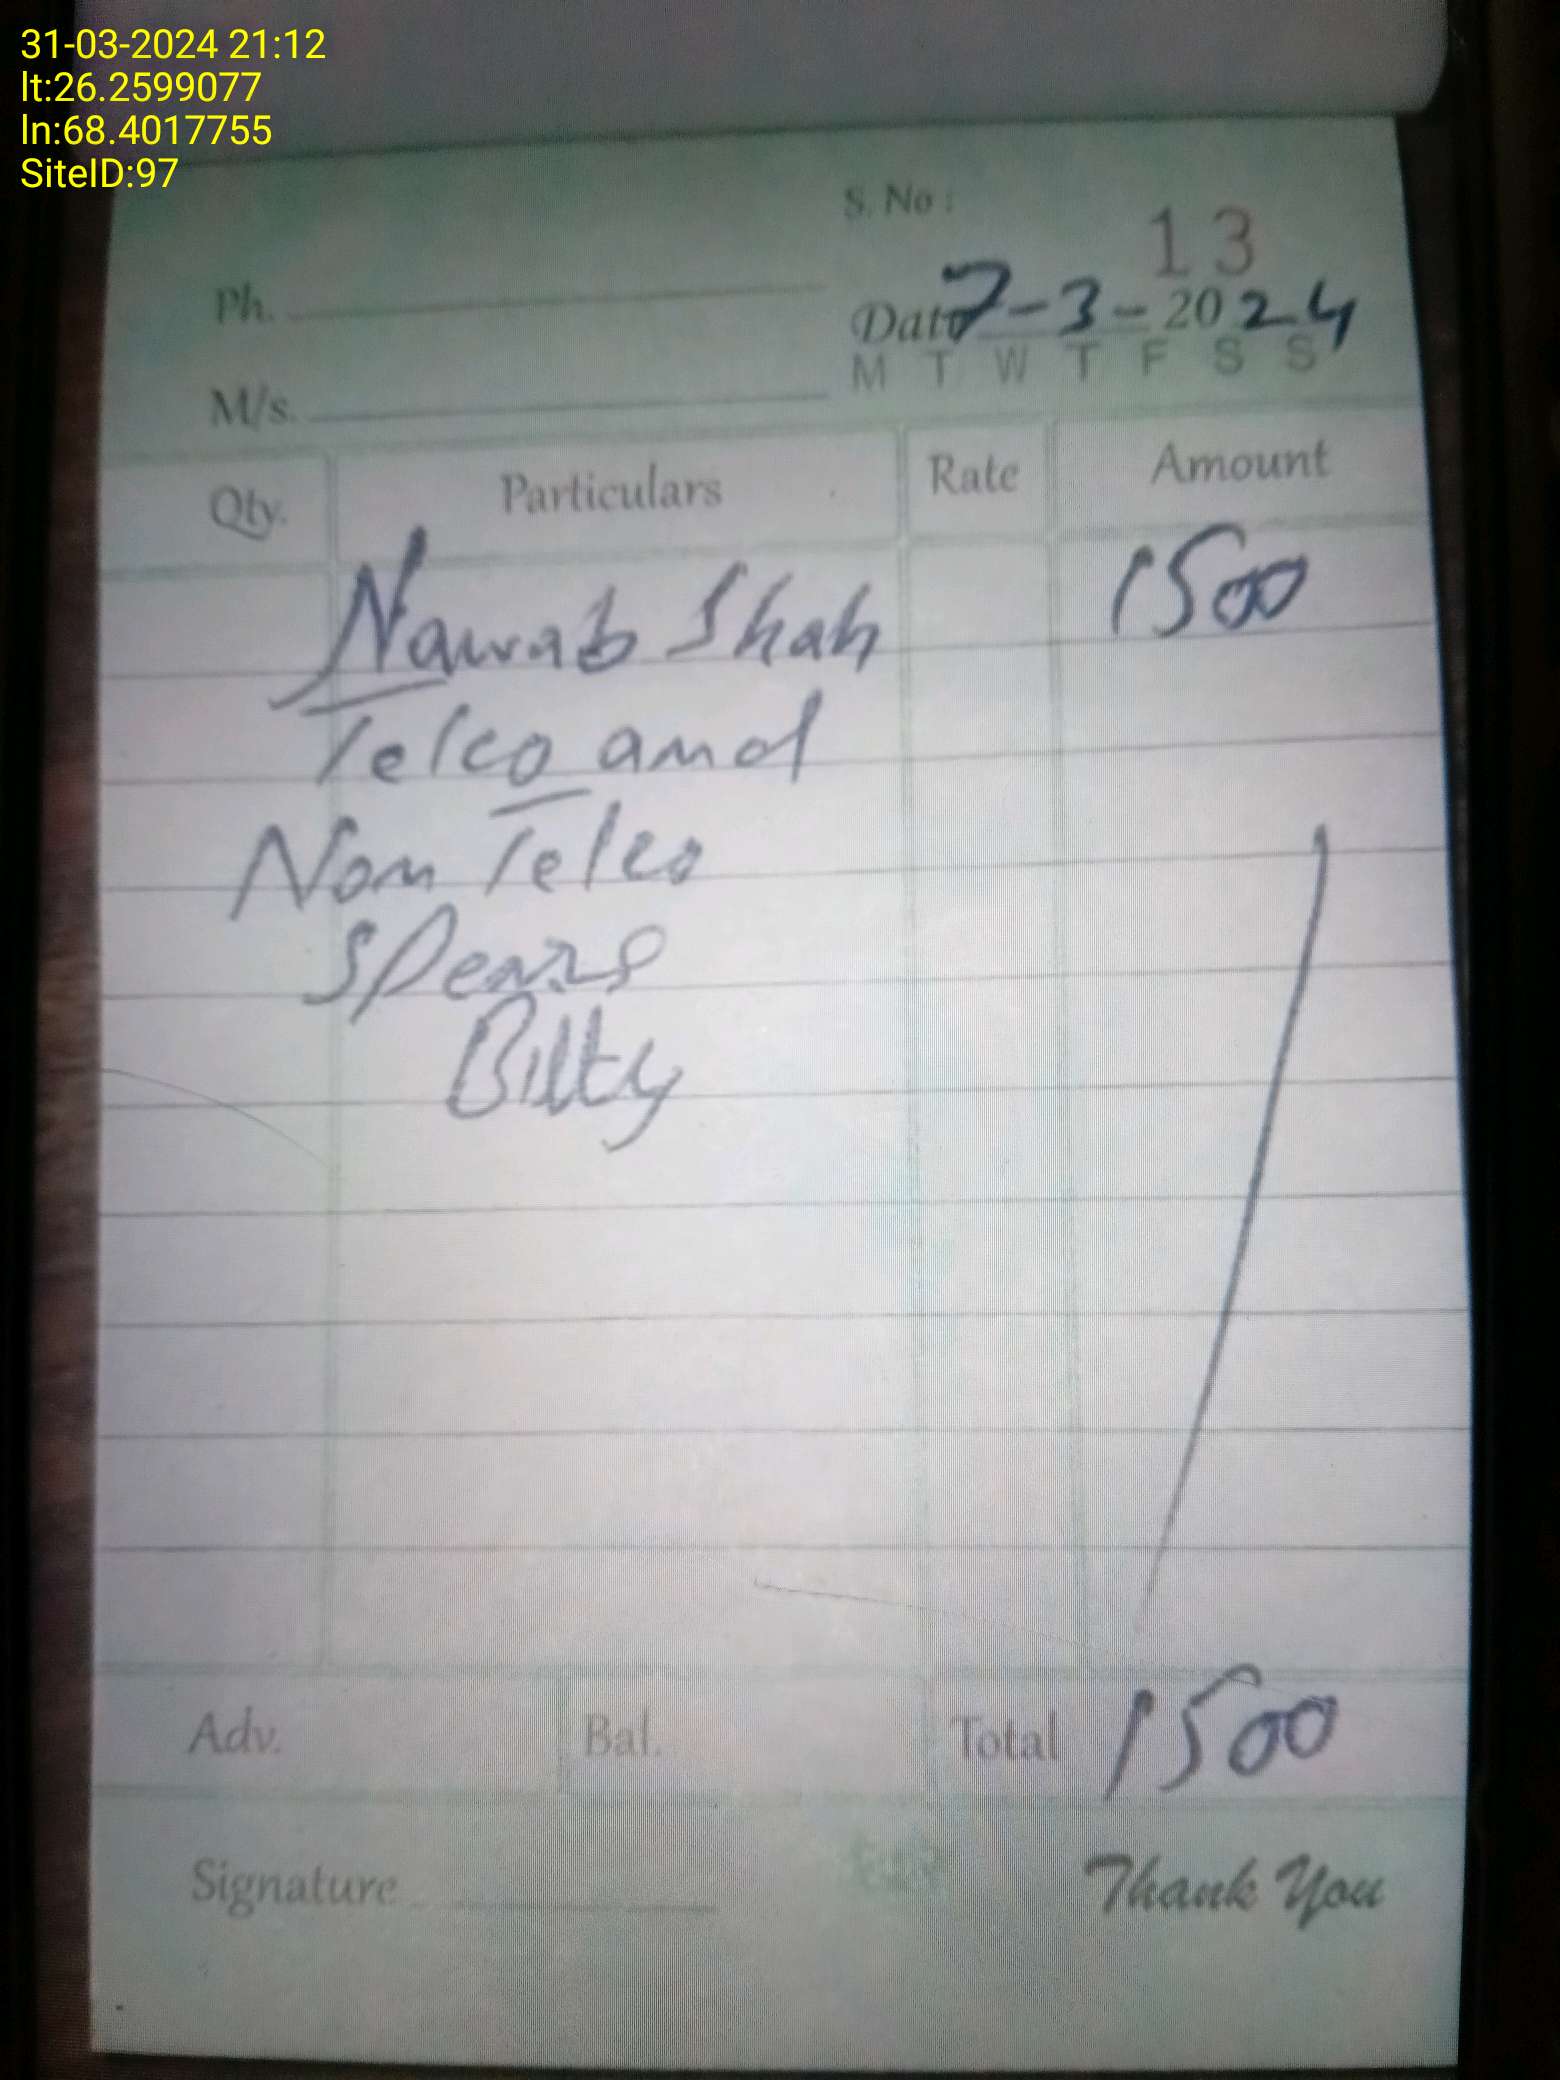 31-03-2024 21:12
lt:26.2599077
ln:68.4017755
SiteID:97
S. No :
13
Ph.
Date 7-3-2024
M T W T F S S
M/s.
Qty. Particulars Rate Amount
Nawab Shah 1500
Telco and
Non Telco
Spears
Bilty
Adv. Bal. Total 1500
Signature Thank You